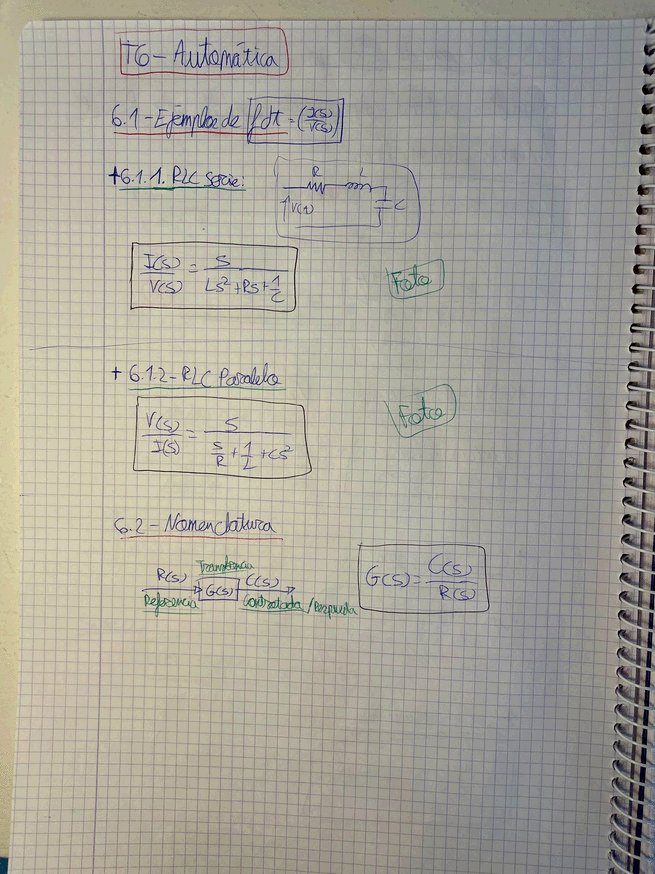 T6 - Automática
6.1 - Ejemplos de fdt = (I(s)/V(s))
+6.1.1. RLC Serie:
R L
V(s) C
I(s)/V(s) = s/(Ls²+Rs+1/C)
Foto
+ 6.1.2 - RLC Paralelo
V(s)/I(s) = s/(s/R + 1/L + Cs²)
Foto
6.2 - Nomenclatura
Transferencia
R(s) G(s) C(s)
Referencia Controlada / Respuesta
G(s) = C(s)/R(s)